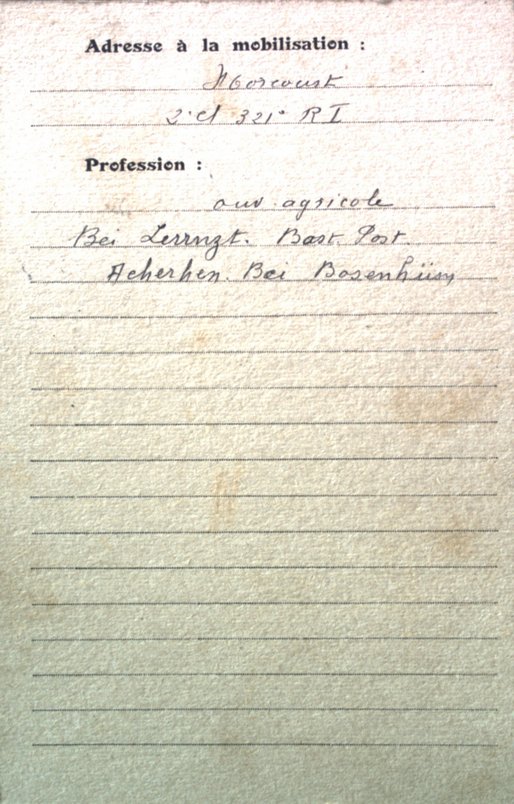 Adresse à la mobilisation :
Morcourt
2e Cl 321e R I
Profession :
ouv agricole
Bei Lerrnzt. Bast. Post.
Acherhen. Bei Bosenhüm